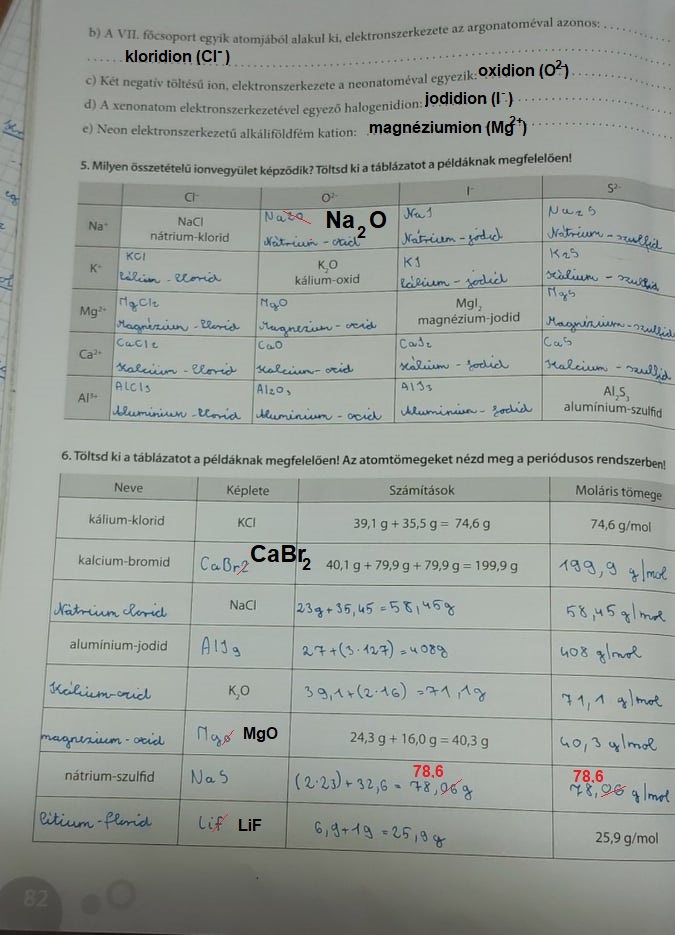 b) A VII. főcsoport egyik atomjából alakul ki, elektronszerkezete az argonatoméval azonos:
kloridion (Cl⁻)
c) Két negatív töltésű ion, elektronszerkezete a neonatoméval egyezik: oxidion (O²⁻)
d) A xenonatom elektronszerkezetével egyező halogenidion: jodidion (I⁻)
e) Neon elektronszerkezetű alkáliföldfém kation: magnéziumion (Mg²⁺)
5. Milyen összetételű ionvegyület képződik? Töltsd ki a táblázatot a példáknak megfelelően!
Cl⁻ O²⁻ I⁻ S²⁻
Na⁺ NaCl Na₂O Na₂O NaI Na₂S
nátrium-klorid Nátrium-oxid Nátrium-jodid Nátrium-szulfid
K⁺ KCl K₂O KI K₂S
kálium-klorid kálium-oxid kálium-jodid Kálium-szulfid
Mg²⁺ MgCl₂ MgO MgI₂ MgS
Magnézium-klorid Magnézium-oxid magnézium-jodid Magnézium-szulfid
Ca²⁺ CaCl₂ CaO CaI₂ CaS
Kalcium-klorid Kalcium-oxid Kalcium-jodid Kalcium-szulfid
Al³⁺ AlCl₃ Al₂O₃ AlI₃ Al₂S₃
Aluminium-klorid Aluminium-oxid Aluminium-jodid alumínium-szulfid
6. Töltsd ki a táblázatot a példáknak megfelelően! Az atomtömegeket nézd meg a periódusos rendszerben!
Neve Képlete Számítások Moláris tömege
kálium-klorid KCl 39,1 g + 35,5 g = 74,6 g 74,6 g/mol
kalcium-bromid CaBr2 CaBr₂ 40,1 g + 79,9 g + 79,9 g = 199,9 g 199,9 g/mol
Nátrium clorid NaCl 23g + 35,45 = 58,45g 58,45 g/mol
alumínium-jodid AlI₃ 27 + (3·127) = 408g 408 g/mol
Kálium-oxid K₂O 39,1 + (2·16) = 71,1g 71,1 g/mol
magnezium-oxid Mgo MgO 24,3 g + 16,0 g = 40,3 g 40,3 g/mol
78,6 78,6
nátrium-szulfid NaS (2·23) + 32,6 = 78,06 g 78,06 g/mol
litium-florid Lif LiF 6,9 + 19 = 25,9 g 25,9 g/mol
82